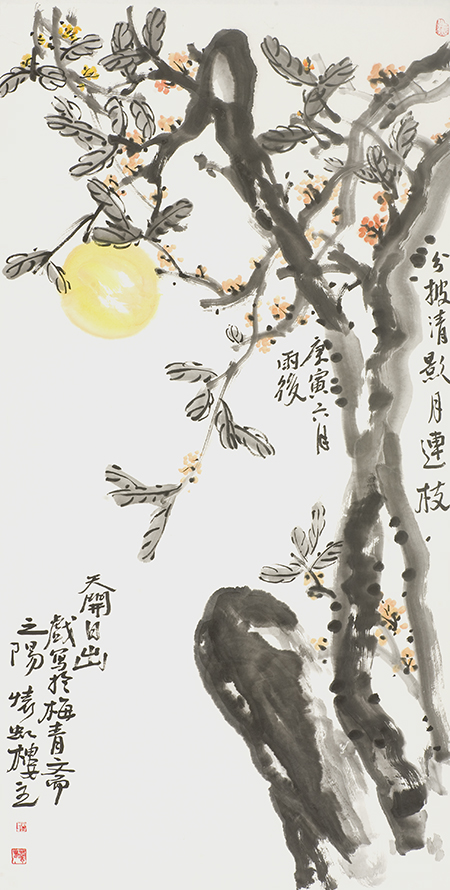 分披清影月連枝
庚寅六月
雨後
天開日出
戲寫於梅青齋
之陽懷虹樓主